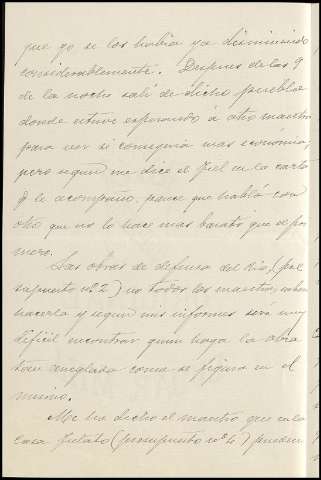 que yo se los había ya disminuido
considerablemente. Despues de las 9
de la noche salí de dicho pueblo
donde estuve esperando á otro maestro
para ver si conseguia mas economia,
pero segun me dice el fiel en la carta
q le acompaño, parece que habló con
otro que no lo hace mas barato que el pri
mero.
Las obras de defensa del Rio, (pre
supuesto nº 2) no todos los maestros saben
hacerla y segun mis informes será muy
dificil encontrar quien haga la obra
tan arreglada como se figura en el
mismo.
Me ha dicho el maestro que en la
casa (presupuesto nº 4) pueden